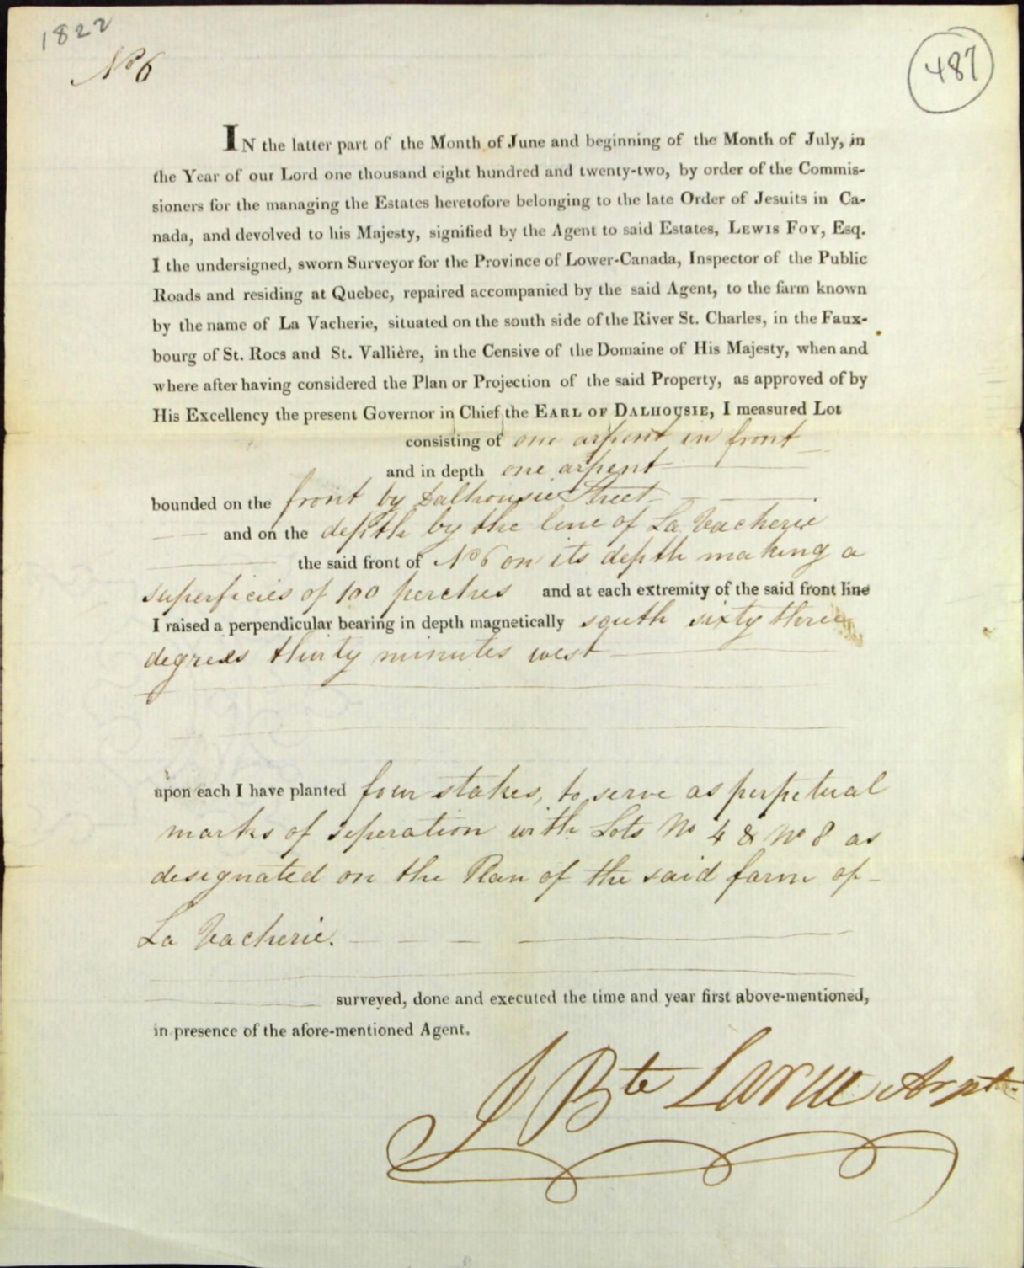 1822
No 6
487
IN the latter part of the Month of June and beginning of the Month of July, in
the Year of our Lord one thousand eight hundred and twenty-two, by order of the Commis-
sioners for the managing the Estates heretofore belonging to the late Order of Jesuits in Ca-
nada, and devolved to his Majesty, signified by the Agent to said Estates, LEWIS FOY, Esq.
I the undersigned, sworn Surveyor for the Province of Lower-Canada, Inspector of the Public
Roads and residing at Quebec, repaired accompanied by the said Agent, to the farm known
by the name of La Vacherie, situated on the south side of the River St. Charles, in the Faux-
bourg of St. Rocs and St. Vallière, in the Censive of the Domaine of His Majesty, when and
where after having considered the Plan or Projection of the said Property, as approved of by
His Excellency the present Governor in Chief the EARL OF DALHOUSIE, I measured Lot
consisting of one arpent in front
and in depth one arpent
bounded on the front by Dalhousie Street
and on the depth by the line of La Vacherie
the said front of No 6 on its depth making a
superficies of 100 perches and at each extremity of the said front line
I raised a perpendicular bearing in depth magnetically south sixty three
degrees thirty minutes west
upon each I have planted four stakes, to serve as perpetual
marks of seperation with Lots No 4 & No 8 as
designated on the Plan of the said farm of
La Vacherie.
surveyed, done and executed the time and year first above-mentioned,
in presence of the afore-mentioned Agent.
J Bte Larue Arptr